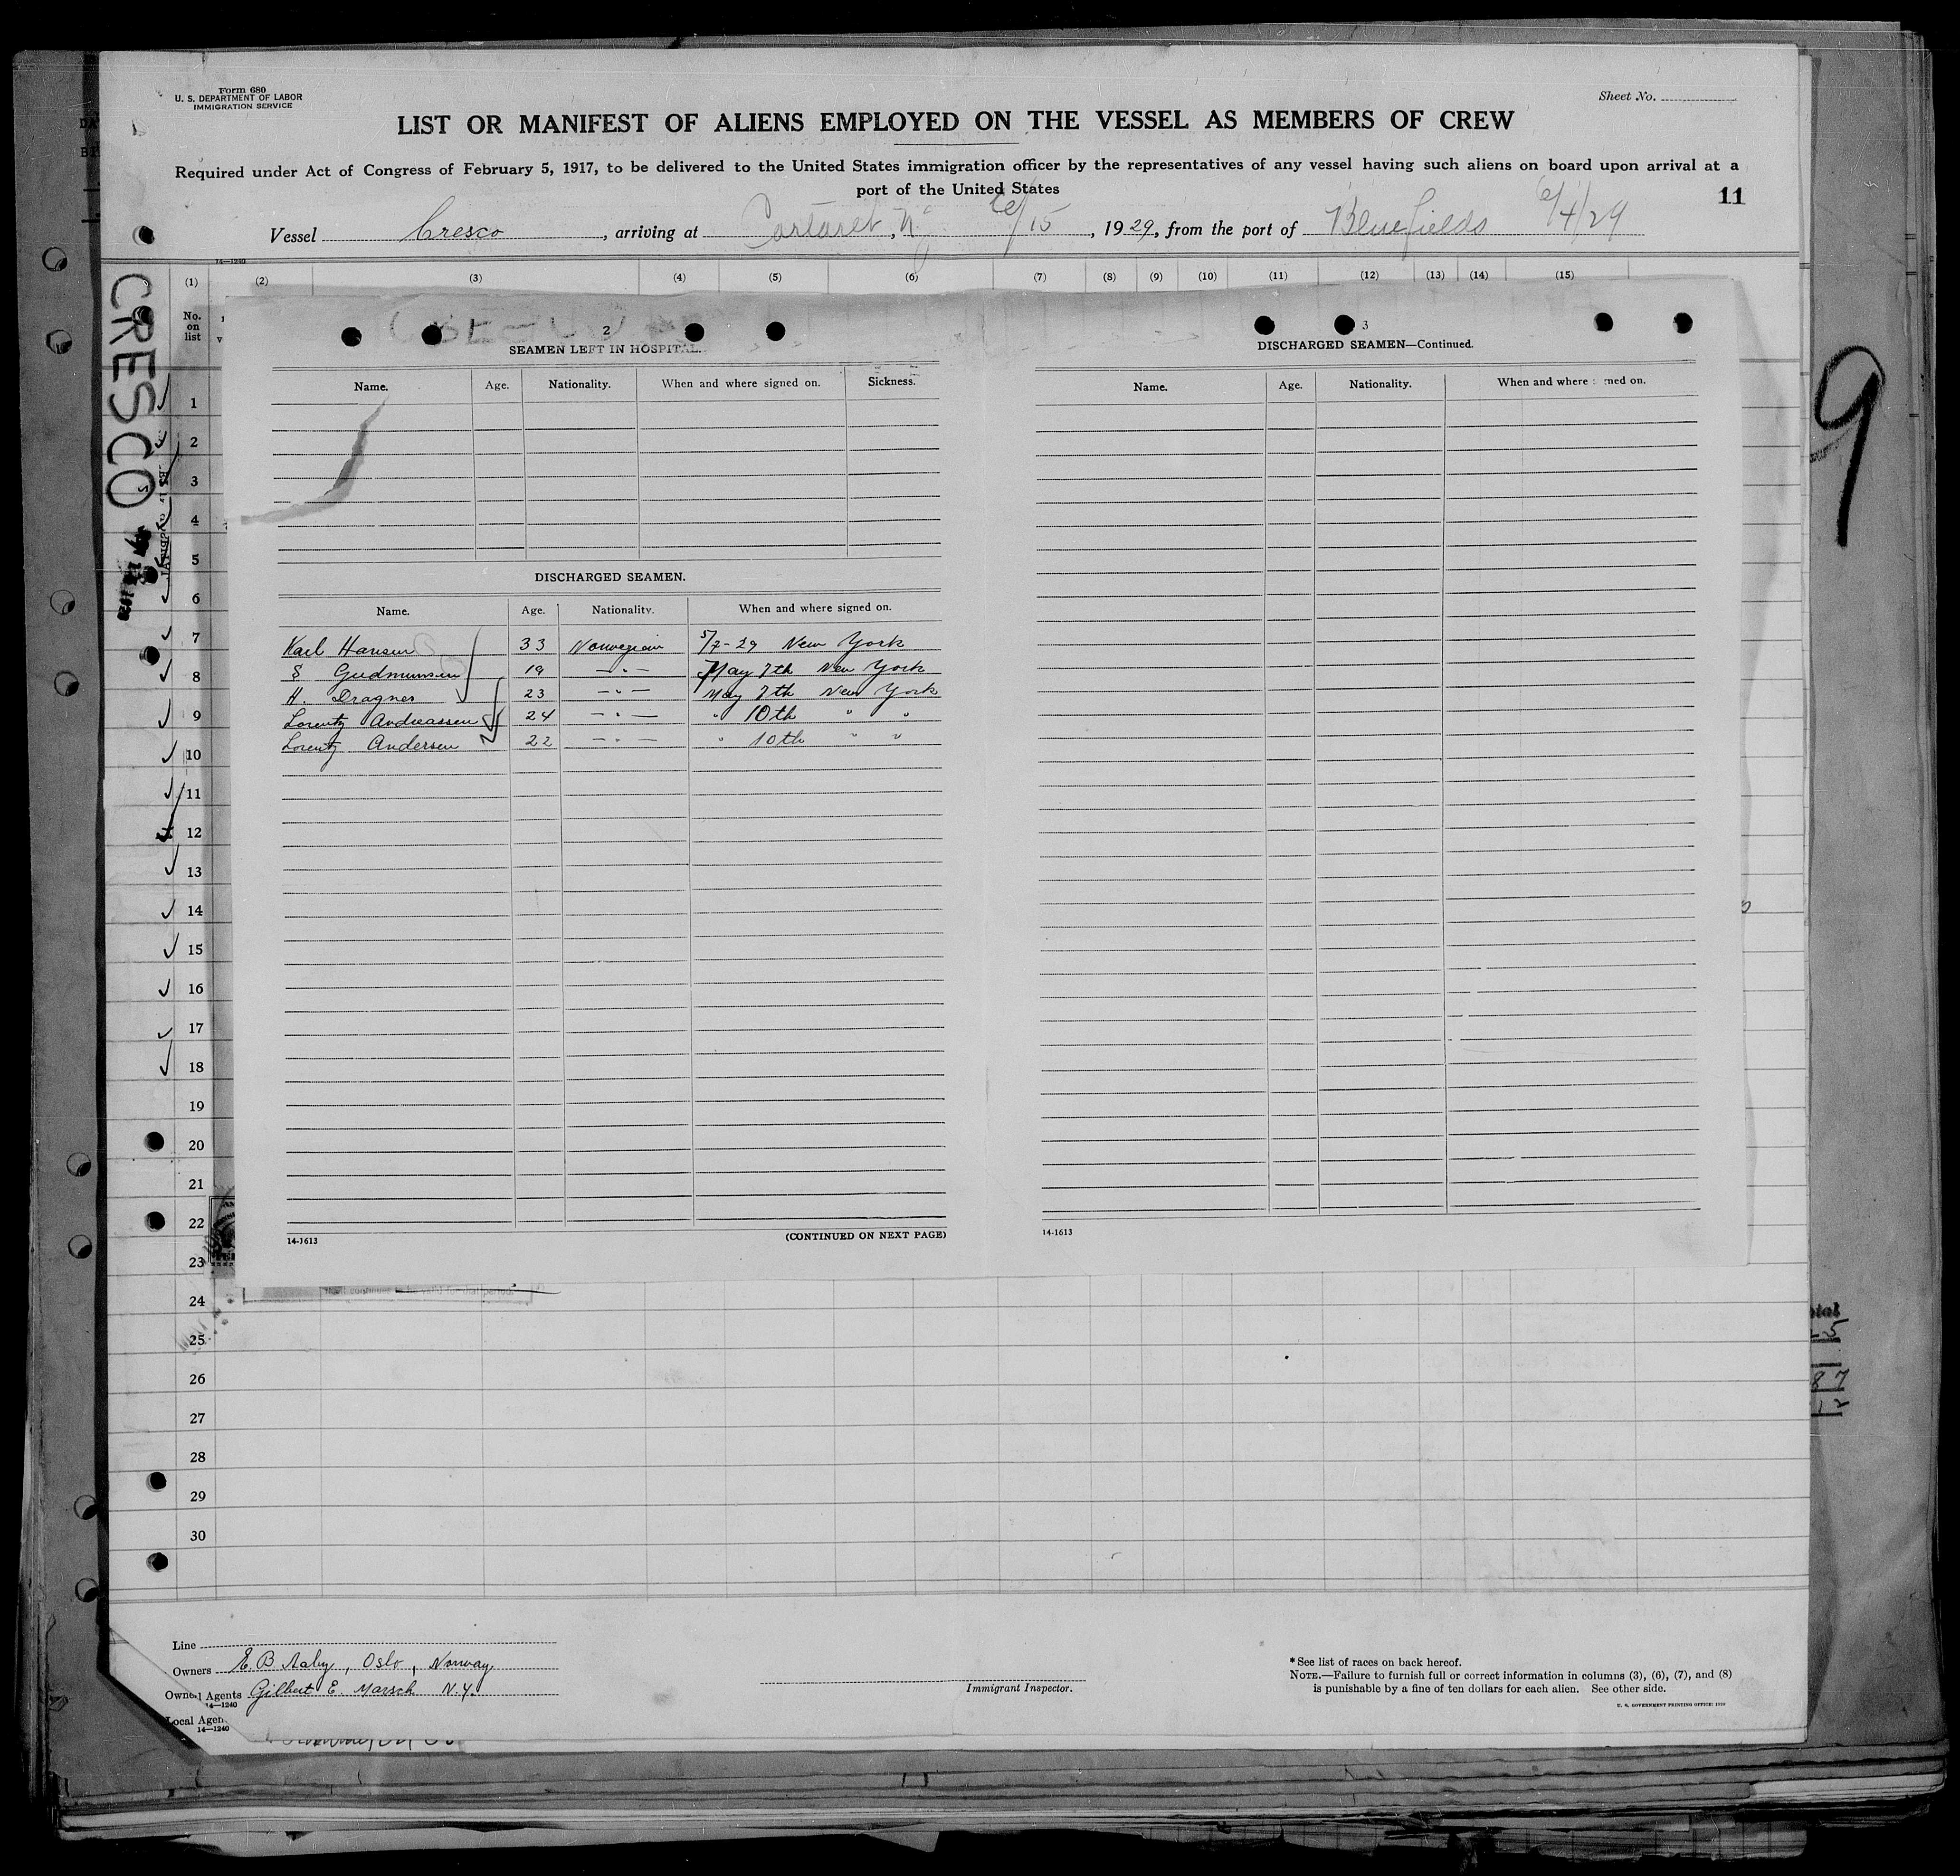 Form 680
U. S. DEPARTMENT OF LABOR
IMMIGRATION SERVICE
Sheet No.
LIST OR MANIFEST OF ALIENS EMPLOYED ON THE VESSEL AS MEMBERS OF CREW
Required under Act of Congress of February 5, 1917, to be delivered to the United States immigration officer by the representatives of any vessel having such aliens on board upon arrival at a
port of the United States
11
Vessel Cresco, arriving at Cartaret, N.J. 6/15, 1929, from the port of Bluefields 6/4/29
14—1240
(1) (2) (3) (4) (5) (6) (7) (8) (9) (10) (11) (12) (13) (14) (15)
CRESCO
9
No.
on
list
2
SEAMEN LEFT IN HOSPITAL.
Name. Age. Nationality. When and where signed on. Sickness.
DISCHARGED SEAMEN.
Name. Age. Nationality. When and where signed on.
Karl Hansen 33 Norwegian 5/7-29 New York
S Gudmunsen 19 —"— May 7th New York
H. Dragnes 23 —"— May 7th New York
Lorentz Andreassen 24 —"— " 10th " "
Lorentz Andersen 22 —"— " 10th " "
14-1613
(CONTINUED ON NEXT PAGE)
3
DISCHARGED SEAMEN—Continued.
Name. Age. Nationality. When and where ned on.
14-1613
1
2
3
4
5
6
7
8
9
10
11
12
13
14
15
16
17
18
19
20
21
22
23
24
25
26
27
28
29
30
Line
Owners E. B. Aaby, Oslo, Norway
Agents Gilbert E. Marsch N.Y.
14—1240
Local Agen
14—1240
Immigrant Inspector.
*See list of races on back hereof.
NOTE.—Failure to furnish full or correct information in columns (3), (6), (7), and (8)
is punishable by a fine of ten dollars for each alien. See other side.
U. S. GOVERNMENT PRINTING OFFICE: